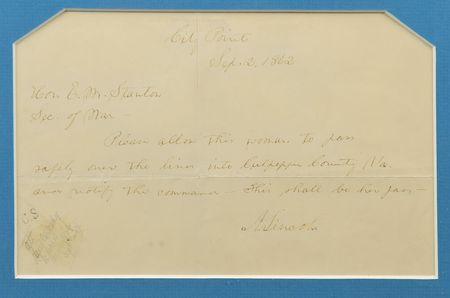 City Point
Sep. 2, 1862
Hon. E. M. Stanton
Sec. of War —
Please allow this woman to pass
safely over the lines into Culpepper County Va.
and notify the command — This shall be her pass —
A. Lincoln